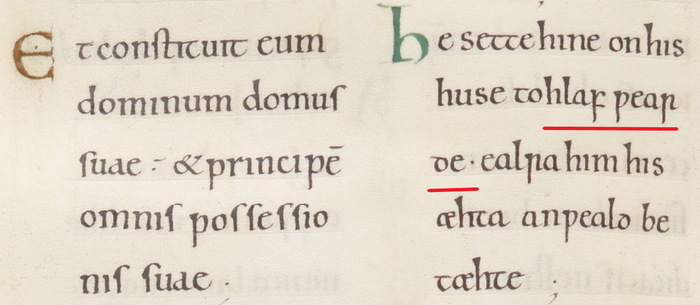 Et constituit eum
dominum domus
suae : & principē
omnis possessio
nis suae ·
he sette hine on his
huse to hlaf ƿear
de · ealra him his
æhta anƿeald be
tæhte ;